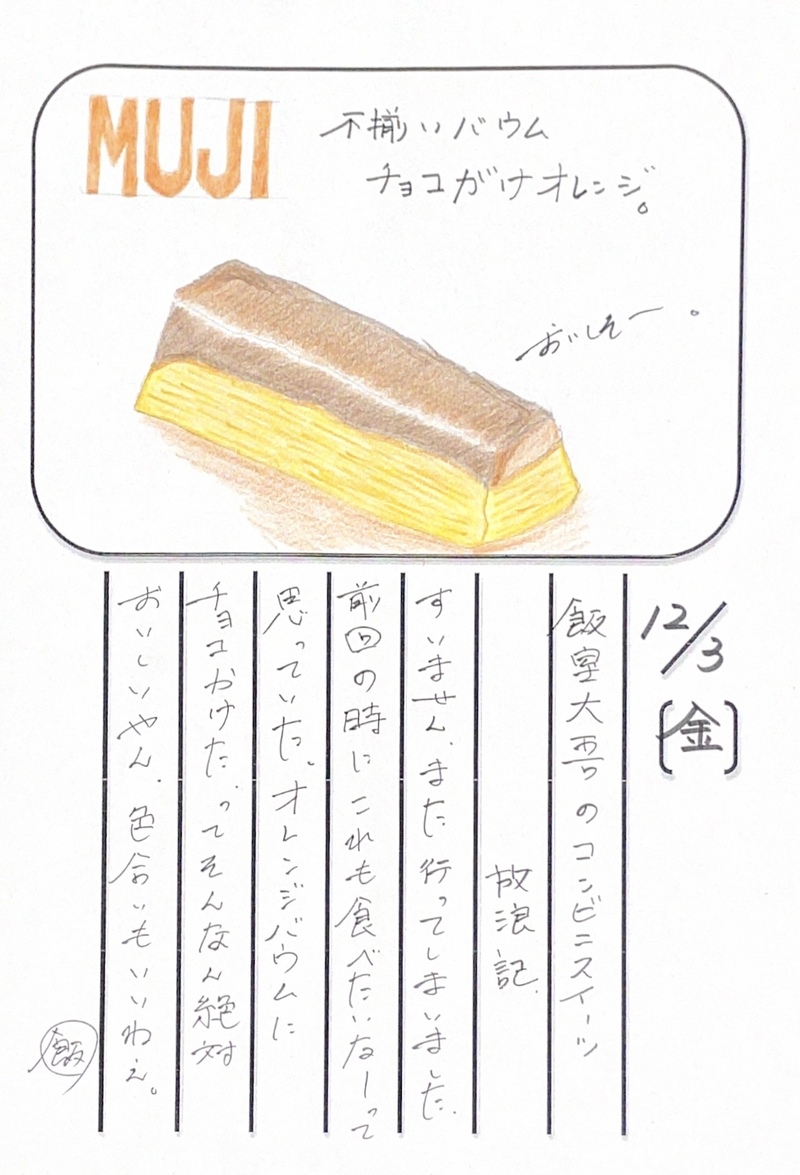 MUJI
不揃いバウム
チョコがけオレンジ。
おいしそー。
12/3
(金)
飯室大吾のコンビニスイーツ
放浪記.
すいません、また行ってしまいました.
前回の時にこれも食べたいなーって
思っていた。オレンジバウムに
チョコかけた"ってそんなん絶対
おいしいやん.色合いもいいねぇ。
飯